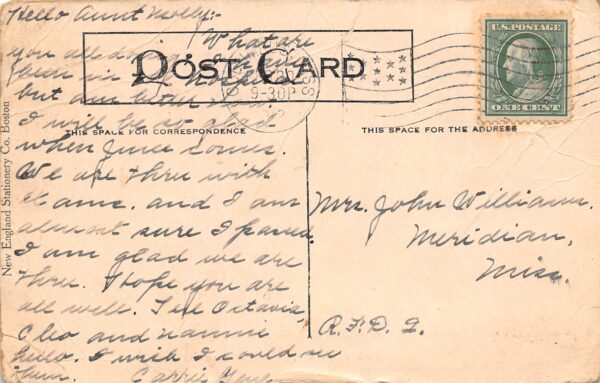 Hello Aunt Molly:-
What are
you all doing
been in
but am better now.
I will be so glad
when June comes.
We are thru with
Exams. and I am
almost sure I passed.
I am glad we are
thru. I hope you are
all well. Tell Octavia,
Cleo and Nannie
hello. I wish I could see
them. Carrie
POST CARD
THIS SPACE FOR CORRESPONDENCE
THIS SPACE FOR THE ADDRESS
New England Stationery Co. Boston
9-30P
U.S. POSTAGE
ONE CENT
Mrs. John Williams.
Meridian,
Miss.
R.F.D.